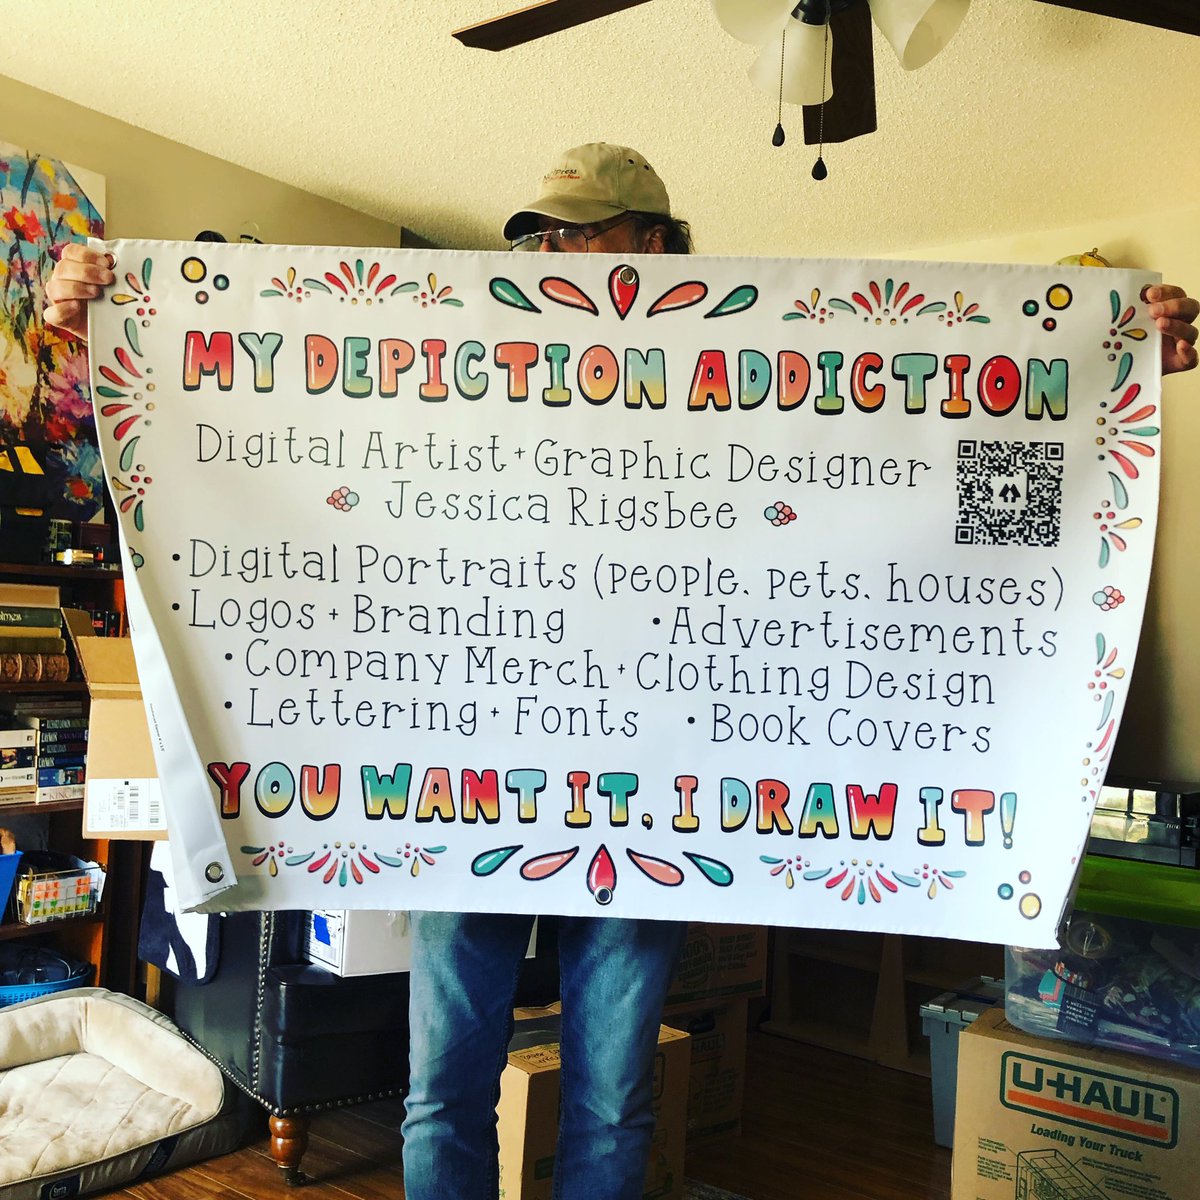 MY DEPICTION ADDICTION
Digital Artist + Graphic Designer
Jessica Rigsbee
• Digital Portraits (people, pets, houses)
• Logos + Branding • Advertisements
• Company Merch + Clothing Design
• Lettering + Fonts • Book Covers
YOU WANT IT, I DRAW IT!
U-HAUL
Loading Your Truck
U-HAUL
KING